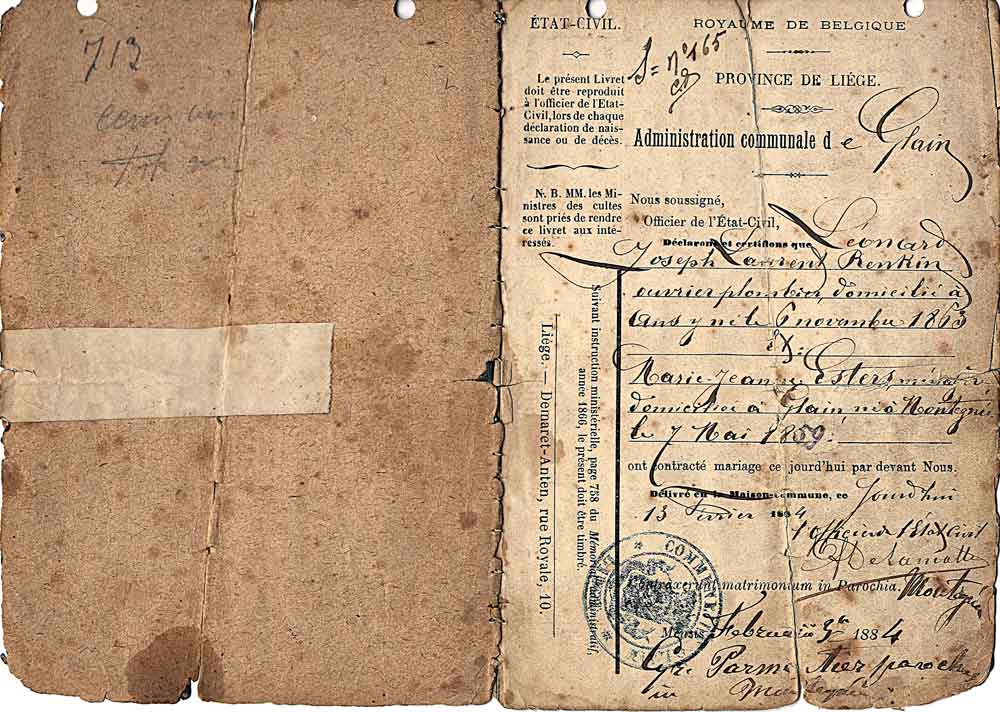 713
ÉTAT-CIVIL.
Le présent Livret
doit être reproduit
à l'officier de l'Etat-
Civil, lors de chaque
déclaration de nais-
sance ou de décès.
N. B. MM. les Mi-
nistres des cultes
sont priés de rendre
ce livret aux inté-
ressés.
Suivant instruction ministérielle, page 758 du Mémorial administratif,
année 1866, le présent doit être timbré.
Liége. — Demaret-Anten, rue Royale, 10.
ROYAUME DE BELGIQUE
n° 165
PROVINCE DE LIÉGE.
Administration communale de Glain
Nous soussigné,
Officier de l'État-Civil,
Déclarons et certifions que Léonard
Joseph Laurent Renkin
ouvrier plombier, domicilié à
Ans y né le 6 novembre 1863
Et
Marie-Jeanne Esters, ménagère
domiciliée à Glain née à Montegnée
le 7 Mai 1859.
ont contracté mariage ce jourd'hui par devant Nous.
Délivré en la Maison-commune, ce jourd'hui
13 Février 1884
l'Officier de l'État Civil
Delamotte
COMMUNE
Contraxerunt matrimonium in Parochia Montegnée
Mensis Februarii 1884
parochus
in Montegnée